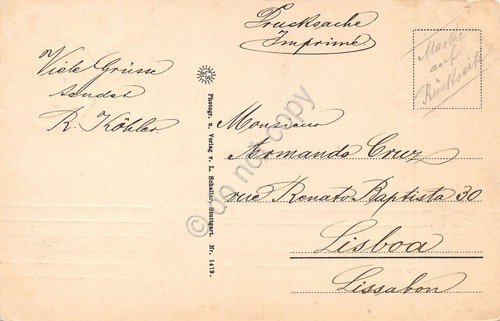 Viele Grüsse
sendet
R. Köhler
Photogr. u. Verlag v. L. Schaller, Stuttgart. Nr. 1412.
Drucksache
Imprimé
Marke
auf
Rückseite
Monsieur
Armando Cruz
rue Renato Baptista 30
Lisboa
Lissabon
do not copy